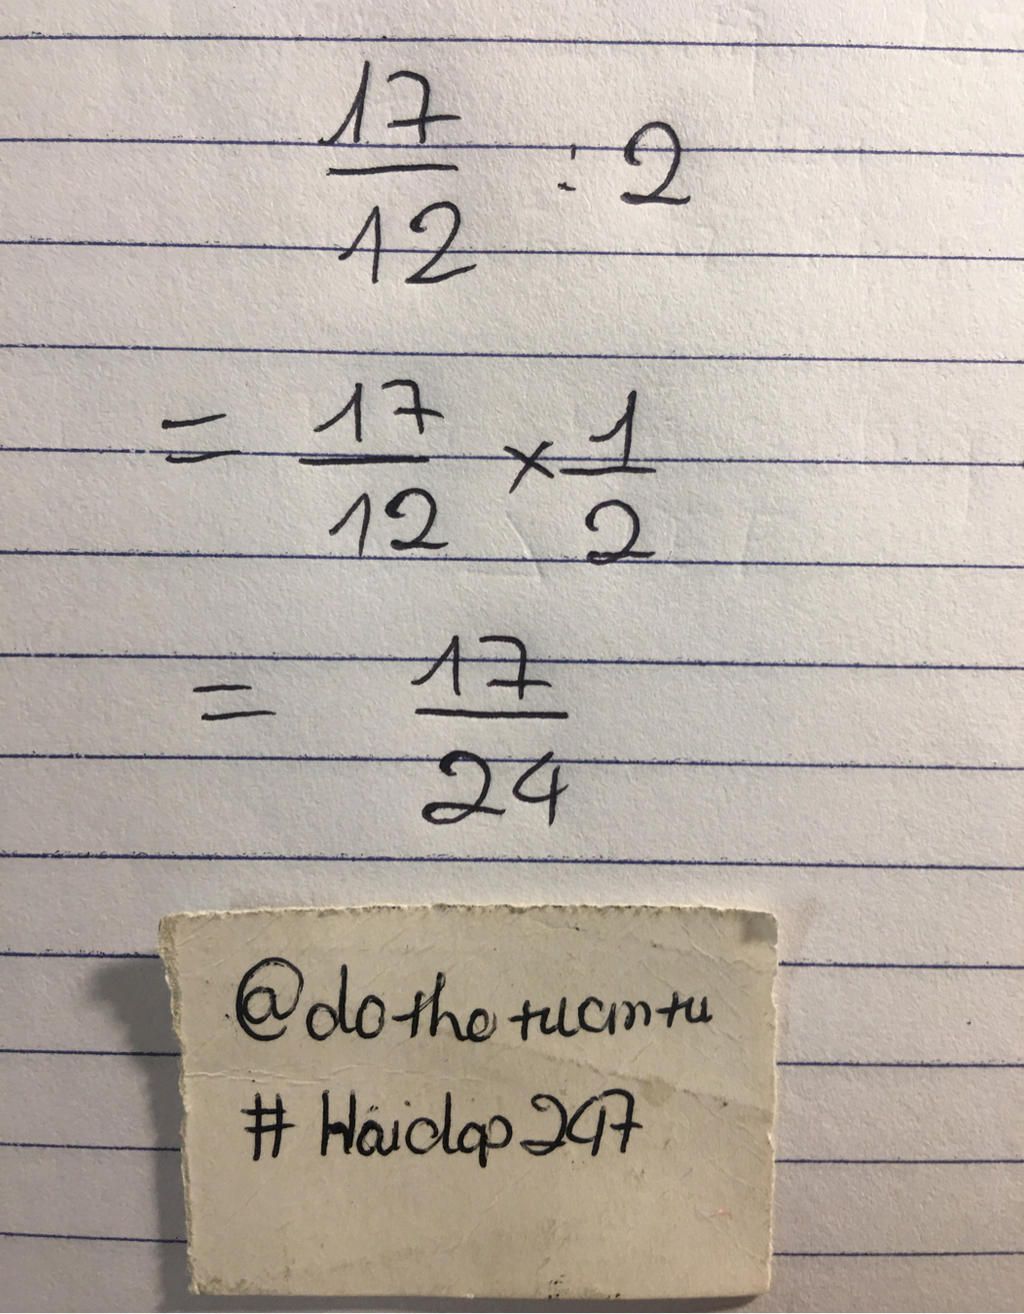 17/12 : 2
= 17/12 × 1/2
= 17/24
@dothetuantu
#Hoidap247